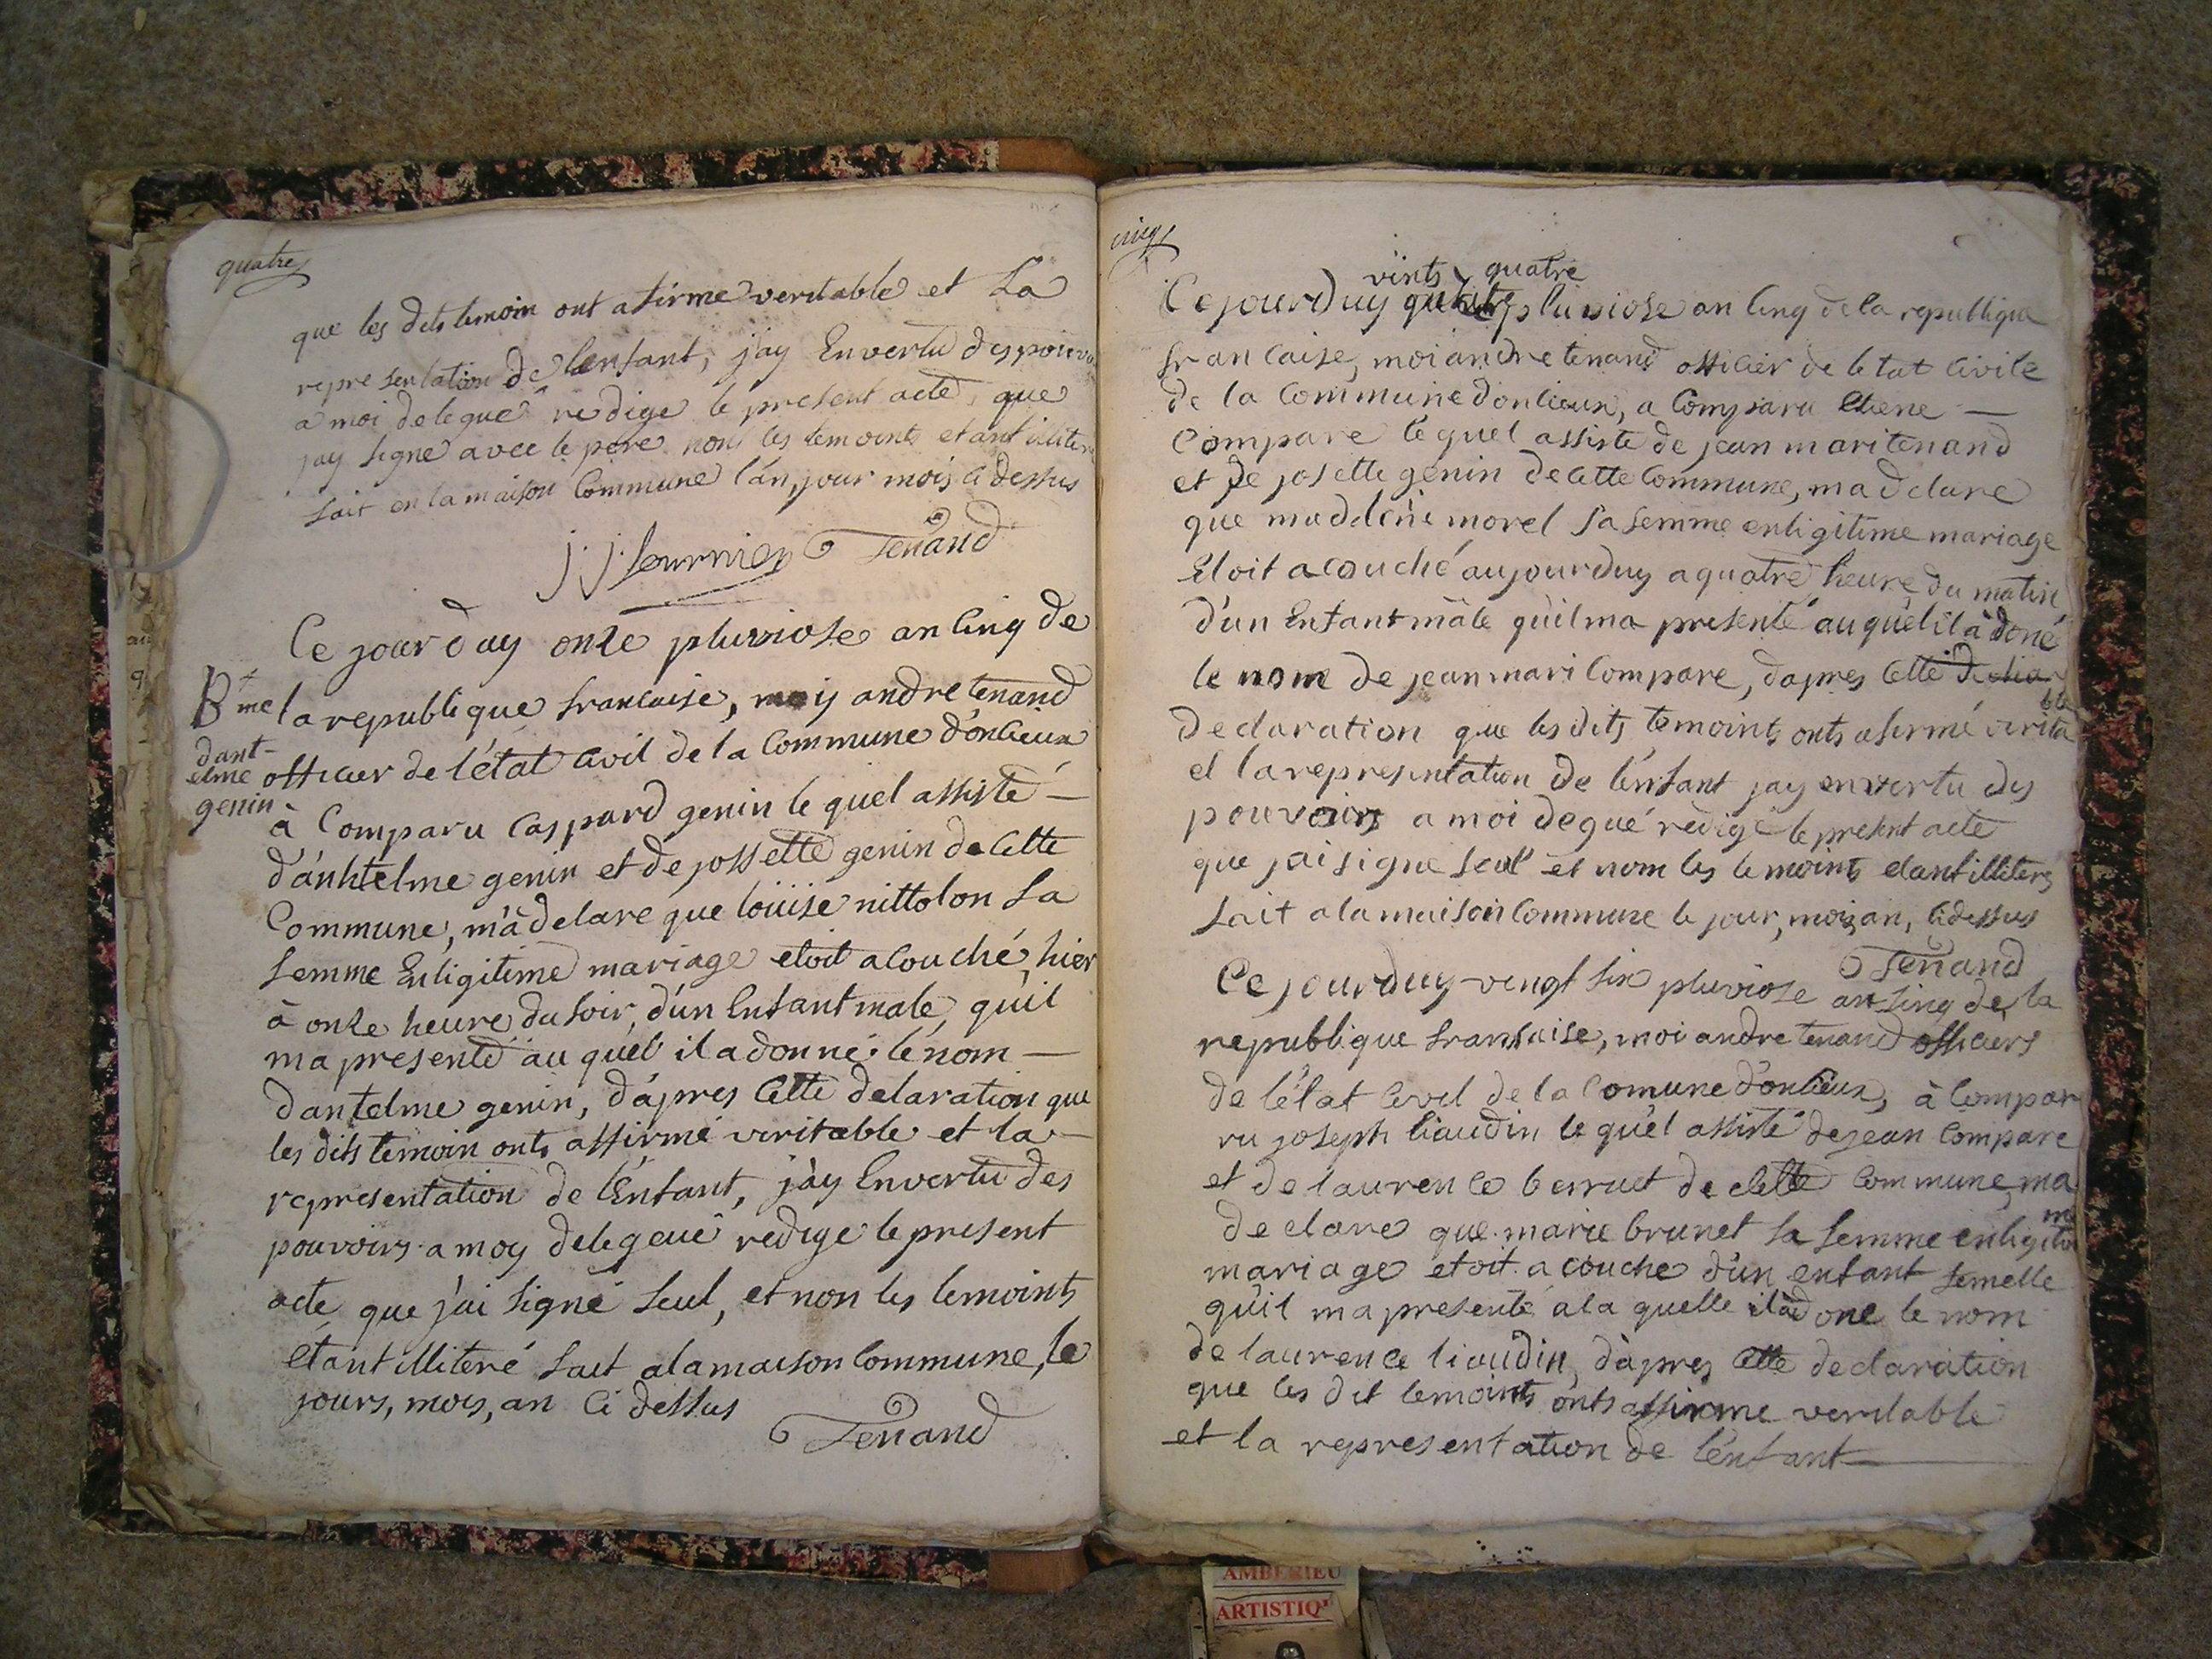 quatre
que les dits temoin ont afirme veritable et La
representation de lenfant, j'ay En vertu des pouvo
a moi delegue redige le present acte, que
jay signe avec le pere non les temoints etant illiter
fait en la maison Commune l'an, jour mois ci dessus
j. j. fournier Tenand
Ce jour duy onze pluviose an Cinq de
la republique francaise, moy andre tenand
officier de l'état Civil de la Commune d'onlieux
à Comparu Caspard genin le quel assisté —
d'anhtelme genin et de jossette genin de Cette
Commune, m'à delare que loüise nittolon sa
femme En ligitime mariage etoit acouché, hier
à onze heure du soir, d'un Enfant male, qu'il
ma presenté au quel il a donné le nom —
dantelme genin, d'apres Cette delaration que
les dits temoin onts affirmé veritable et la —
representation de l'Enfant, j'ay En vertu des
pouvoirs a moy delegeué redige le present
acte que j'ai signé seul, et non les temoints
étant illiteré fait a la maison Commune, le
jours, mois, an Ci dessus
Tenand
B me
dant-
elme
genin
cinq
vints quatre
Ce jourduy pluviose an Cinq de la republique
francaise, moi andre tenand officier de letat Civile
de la Commune donlieux, a Comparu Etiene —
Compare le quel assiste de jean mari tenand
et de josette genin de Cette Commune, ma dclare
que maddelene morel sa femme en ligitime mariage
Etoit acouché aujourduy a quatre heure du matin
d'un Enfant mâle qu'il ma presenté au quel il à doné
le nom de jean mari Compare, dapres Cette declar
declaration que les dits temoints onts afirmé verita
ble
et la representation de l'enfant jay en vertu des
pouvoirs a moi degué redigé le present acte
que jai signe seul et nom les temoints etant illiters
fait a la maison Commune le jour, mois, an, Ci dessus
Tenand
Ce jourduy vengt six pluviose an sinq de la
republique fransaise, moi andre tenand officiers
de l'état Civil de la Comune d'onlieux, à Compar
ru joseph liaudin le quel assisté de jean Compare
et de laurence berruet de Cette Commune, ma
declare que marie brunet sa femme en ligiti
me
mariage etoit acouche d'un enfant femelle
qu'il ma presenté a la quelle il à done le nom
de laurence liaudin, d'apres Cette declaration
que les dit temoints onts affirme veritable
et la representation de l'enfant —
AMBERIEU
ARTISTIQ